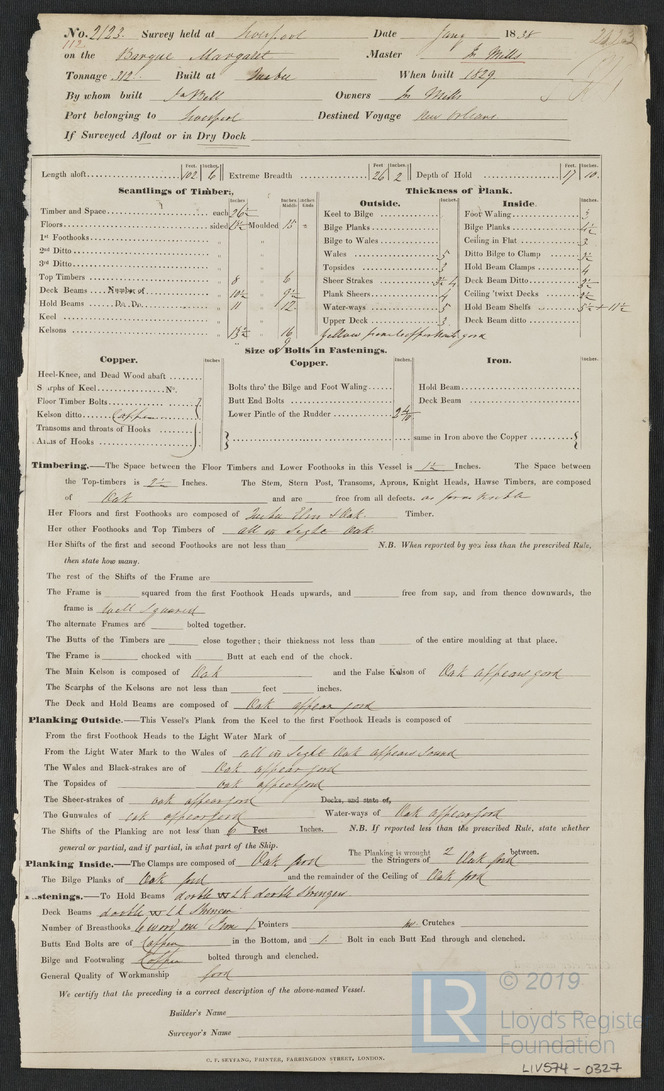 No. 2123 Survey held at Liverpool Date Jany 1838 2123
112
on the Barque Margaret Master Jn Mills
Tonnage 312 Built at When built 1829
By whom built Bell Owners Jn Mills
Port belonging to Liverpool Destined Voyage New Orleans
If Surveyed Afloat or in Dry Dock
Length aloft Feet. 102 Inches. 6 Extreme Breadth Feet 26 Inches. 2 Depth of Hold Feet 17 Inches. 10
Scantlings of Timber. Thickness of Plank.
Outside. Inside.
Timber and Space each 26½ Keel to Bilge Foot Waling 3
Floors sided Moulded 15 Bilge Planks Bilge Planks 4½
1st Foothooks Bilge to Wales Ceiling in Flat 3
2nd Ditto Wales 5 Ditto Bilge to Clamp
3rd Ditto Topsides 3 Hold Beam Clamps 4
Top Timbers 8 6 Sheer Strakes 3½ 4 Deck Beam Ditto 3½
Deck Beams Number of 10½ 9½ Plank Sheers 4 Ceiling 'twixt Decks
Hold Beams Do. Do. 11 12 Water-ways 5 Hold Beam Shelfs 5½ + 11½
Keel Upper Deck 3 Deck Beam ditto
Kelsons 13½ 16
9
Size of Bolts in Fastenings.
Copper. Copper. Iron.
Heel-Knee, and Dead Wood abaft
Scarphs of Keel No. Bolts thro' the Bilge and Foot Waling Hold Beam
Floor Timber Bolts Butt End Bolts Deck Beam
Kelson ditto Copper Lower Pintle of the Rudder
Transoms and throats of Hooks
Arms of Hooks same in Iron above the Copper
Timbering.—The Space between the Floor Timbers and Lower Foothooks in this Vessel is 1½ Inches. The Space between
the Top-timbers is 2½ Inches. The Stem, Stern Post, Transoms, Aprons, Knight Heads, Hawse Timbers, are composed
of Oak and are free from all defects.
Her Floors and first Foothooks are composed of Elm & Oak Timber.
Her other Foothooks and Top Timbers of all in Sight Oak
Her Shifts of the first and second Foothooks are not less than N.B. When reported by you less than the prescribed Rule,
then state how many.
The rest of the Shifts of the Frame are
The Frame is squared from the first Foothook Heads upwards, and free from sap, and from thence downwards, the
frame is Well Squared
The alternate Frames are bolted together.
The Butts of the Timbers are close together; their thickness not less than of the entire moulding at that place.
The Frame is chocked with Butt at each end of the chock.
The Main Kelson is composed of Oak and the False Kelson of Oak appears good
The Scarphs of the Kelsons are not less than feet inches.
The Deck and Hold Beams are composed of Oak appear good
Planking Outside.—This Vessel's Plank from the Keel to the first Foothook Heads is composed of
From the first Foothook Heads to the Light Water Mark of
From the Light Water Mark to the Wales of all in Sight Oak appears Sound
The Wales and Black-strakes are of Oak appear good
The Topsides of Oak appear good
The Sheer-strakes of oak appear good Decks, and state of,
The Gunwales of oak appear good Water-ways of Oak appear good
The Shifts of the Planking are not less than 6 Feet Inches. N.B. If reported less than the prescribed Rule, state whether
general or partial, and if partial, in what part of the Ship.
The Planking is wrought 2 between.
Planking Inside.—The Clamps are composed of Oak good the Stringers of Oak good
The Bilge Planks of Oak good and the remainder of the Ceiling of Oak good
Fastenings.—To Hold Beams double
Deck Beams double
Number of Breasthooks 6 Pointers Crutches
Butts End Bolts are of Copper in the Bottom, and 1 Bolt in each Butt End through and clenched.
Bilge and Footwaling Copper bolted through and clenched.
General Quality of Workmanship good
We certify that the preceding is a correct description of the above-named Vessel.
Builder's Name
Surveyor's Name
C. F. SEYFANG, PRINTER, FARRINGDON STREET, LONDON.
LR © 2019
Lloyd's Register
Foundation
LIV574-0327